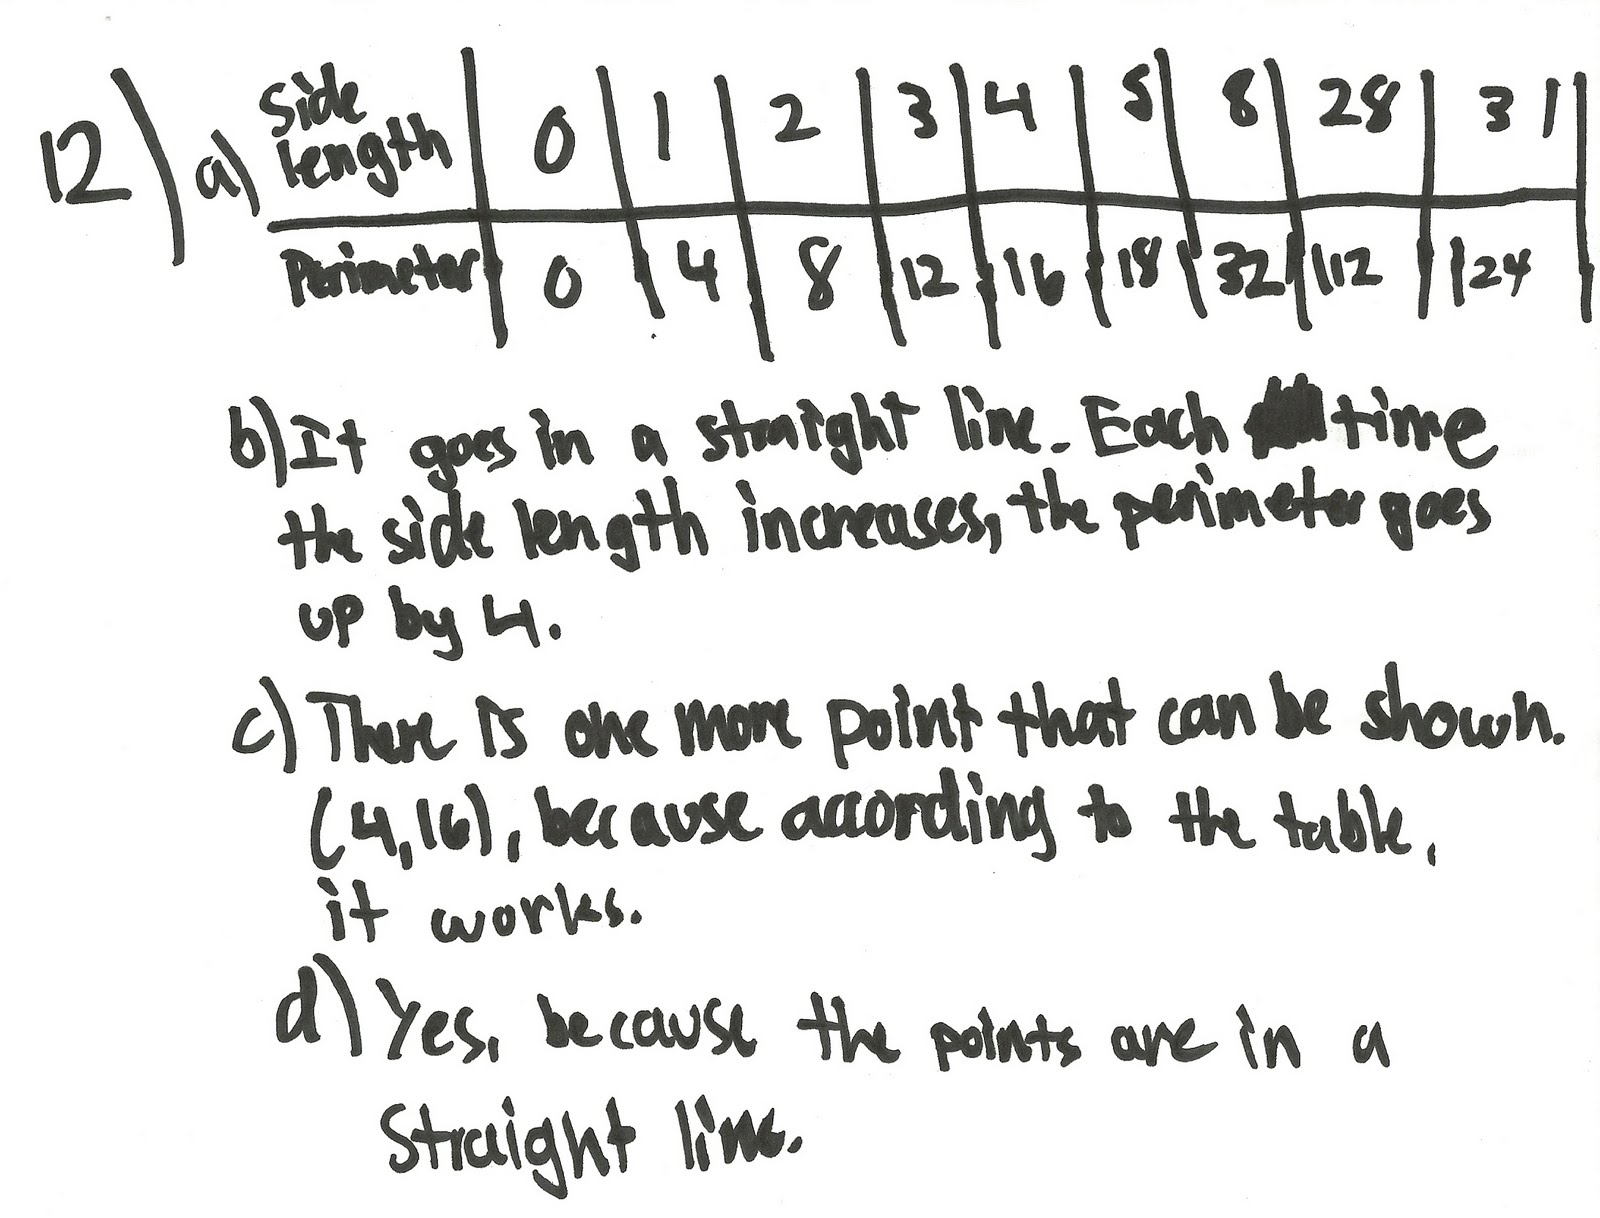 12) a) Side length | 0 | 1 | 2 | 3 | 4 | 5 | 8 | 28 | 31 |
Perimeter | 0 | 4 | 8 | 12 | 16 | 18 | 32 | 112 | 124 |
b) It goes in a straight line. Each time
the side length increases, the perimeter goes
up by 4.
c) There is one more point that can be shown.
(4,16), because according to the table,
it works.
d) Yes, because the points are in a
straight line.